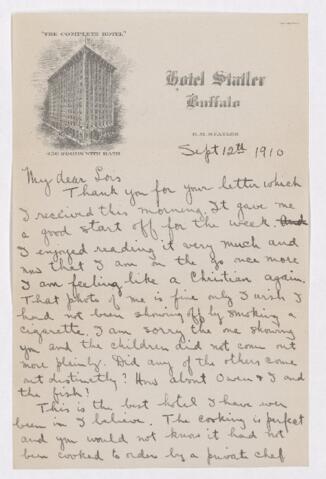 "THE COMPLETE HOTEL"
450 ROOMS WITH BATH
Hotel Statler
Buffalo
E. M. STATLER
Sept 12th 1910
My dear Lois
Thank you for your letter which
I received this morning. It gave me
a good start off for the week. And
I enjoyed reading it very much and
now that I am on the go once more
I am feeling like a Christian again.
That photo of me is fine only I wish I
had not been showing off by smoking a
cigarette. I am sorry the one showing
you and the children did not come out
more plainly. Did any of the others come
out distinctly? How about Owen & I and
the fish?
This is the best hotel I have ever
been in I believe. The cooking is perfect
and you would not know it had not
been cooked to orders by a private chef